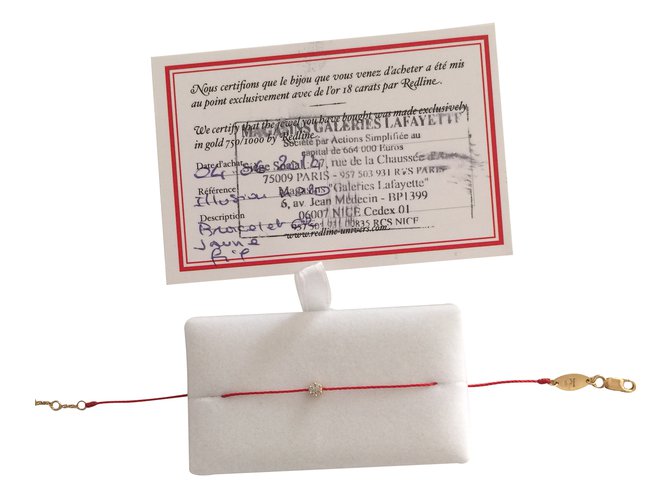 Nous certifions que le bijou que vous venez d'acheter a été mis
au point exclusivement avec de l'or 18 carats par Redline.
We certify that the jewel you have bought was made exclusively
in gold 750/1000 by Redline.
MAGASINS GALERIES LAFAYETTE
Société par Actions Simplifiée au
capital de 664 000 Euros
Date d'achat
Siège Social 27, rue de la Chaussée d'Antin
75009 PARIS - 957 503 931 RCS PARIS
Référence
Illusion
Magasins "Galeries Lafayette"
6, av. Jean Médecin - BP1399
Description
06007 NICE Cedex 01
Bracelet
RCS NICE
Jaune
www.redline-univers.com